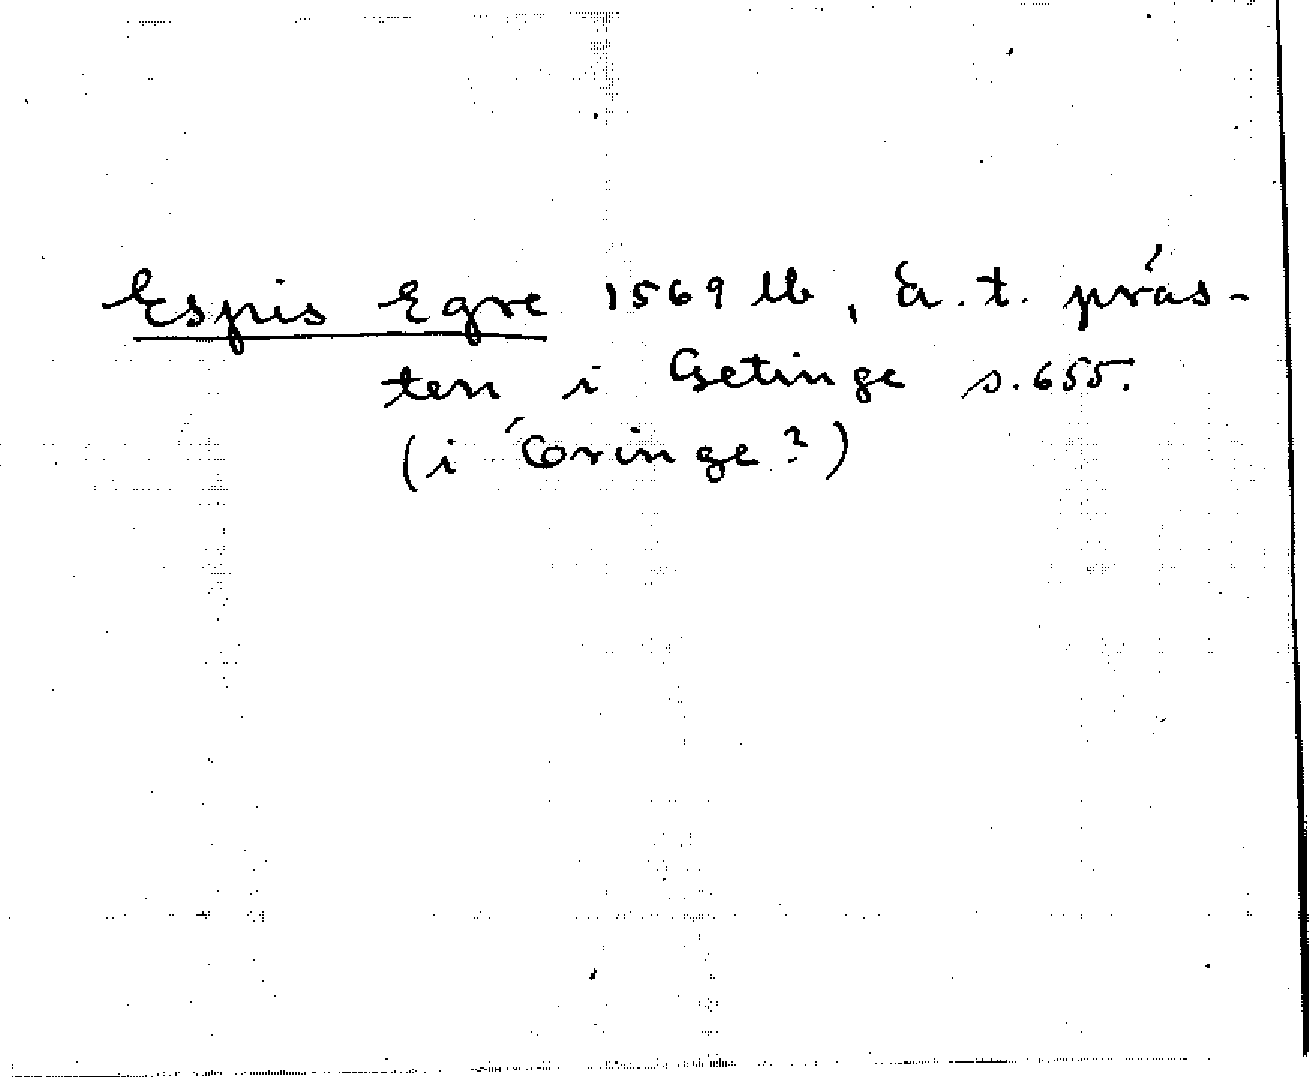 Espis Egre 1569 lb, ä.t. präs-
ten i Getinge s. 655.
(i Öringe?)